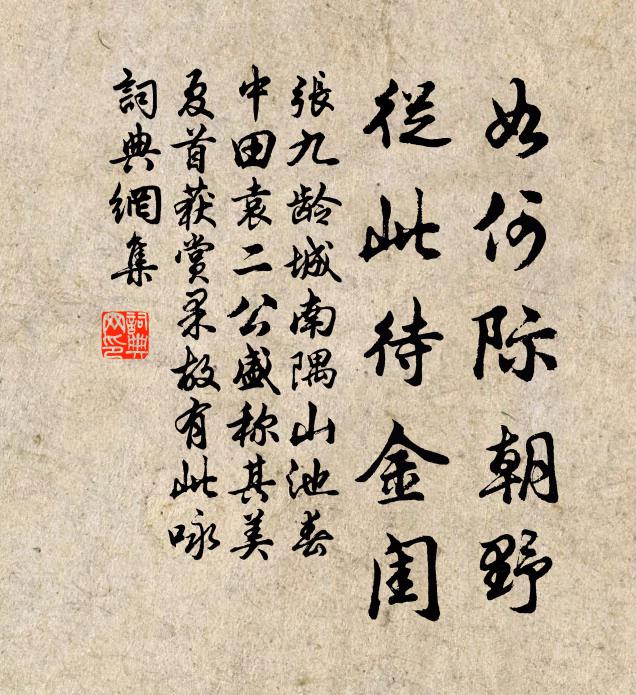 如何际朝野
従此待金闺
張九龄城南隅山池春
中田袁二公盛称其美
夏首获賞果故有此咏
詞典網集
詞典
网印